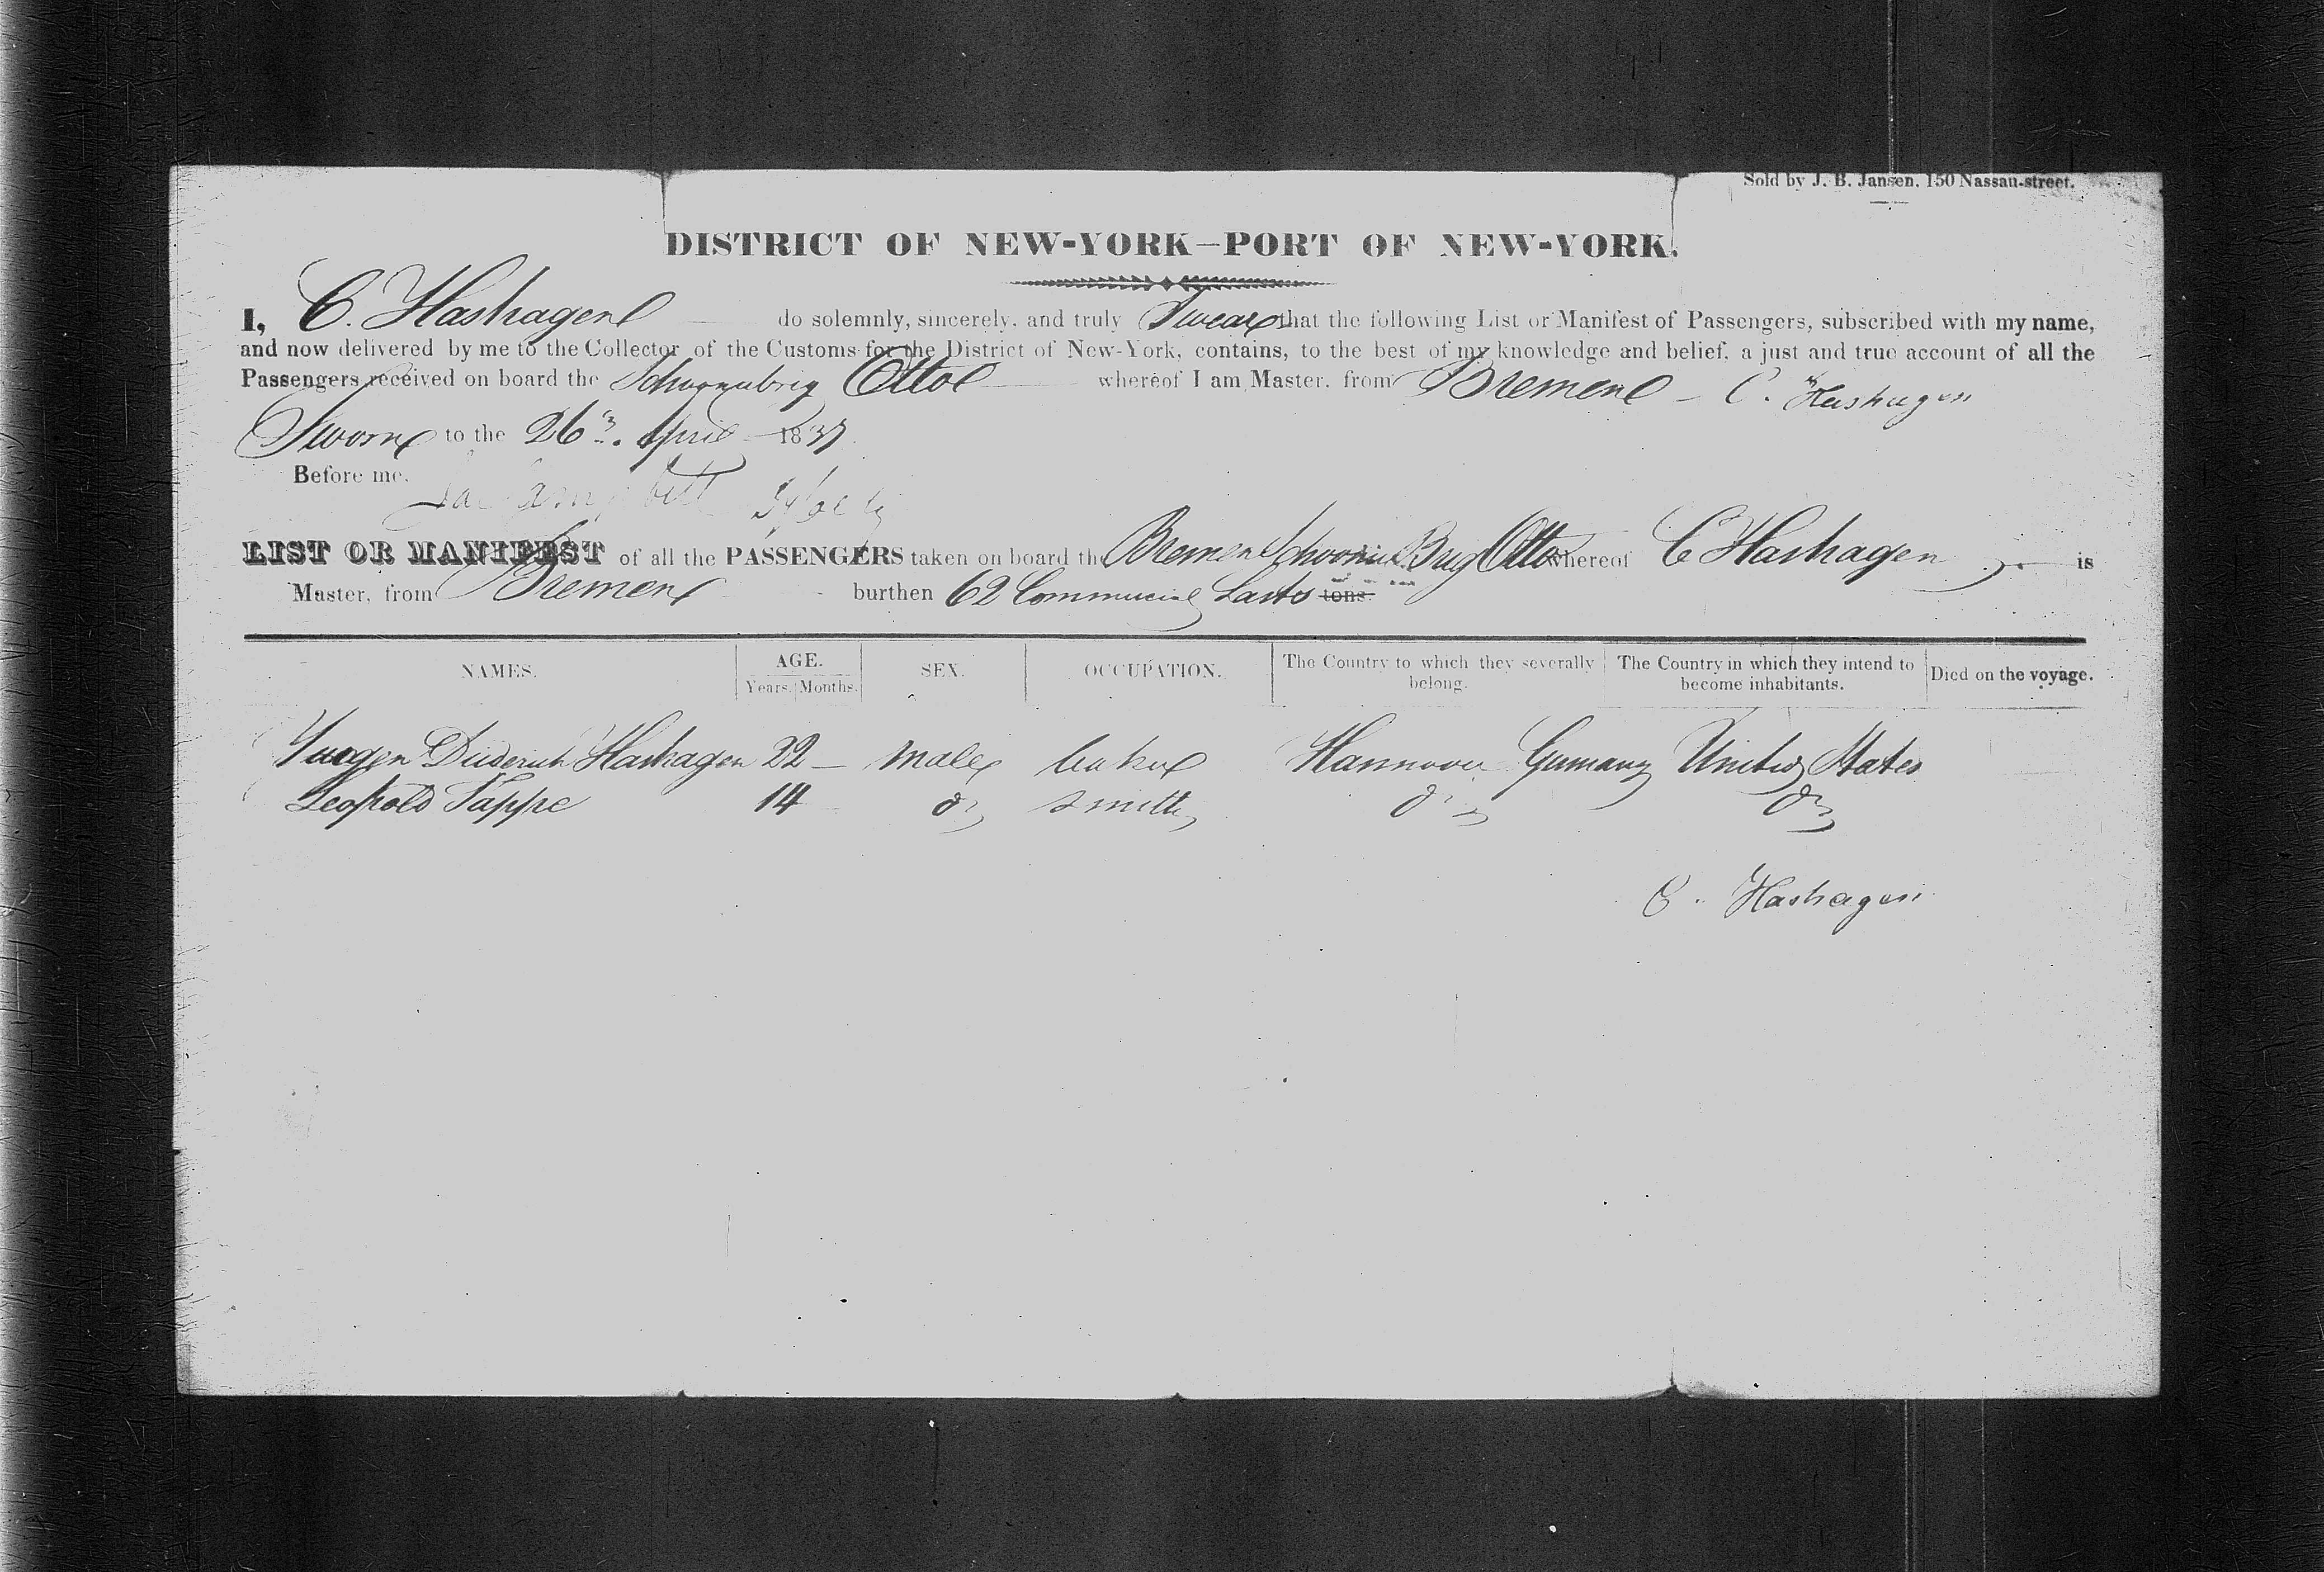 Sold by J. B. Jansen, 150 Nassau-street.
DISTRICT OF NEW-YORK—PORT OF NEW-YORK.
I, C. Hashagen do solemnly, sincerely, and truly Swear that the following List or Manifest of Passengers, subscribed with my name,
and now delivered by me to the Collector of the Customs for the District of New-York, contains, to the best of my knowledge and belief, a just and true account of all the
Passengers received on board the Schoonerbrig Otto whereof I am Master, from Bremen – C. Hashagen
Sworn to the 26 April 1837
Before me,
LIST OR MANIFEST of all the PASSENGERS taken on board the Bremen Schooner Brig Otto whereof C Hashagen is
Master, from Bremen burthen 62 Commercial Lasts tons.
NAMES. AGE. SEX. OCCUPATION. The Country to which they severally belong. The Country in which they intend to become inhabitants. Died on the voyage.
Years. Months.
Juergen Diederich Hashagen 22 – male baker Hannover Germany United States
Leopold Tappe 14 do smith do do
C. Hashagen